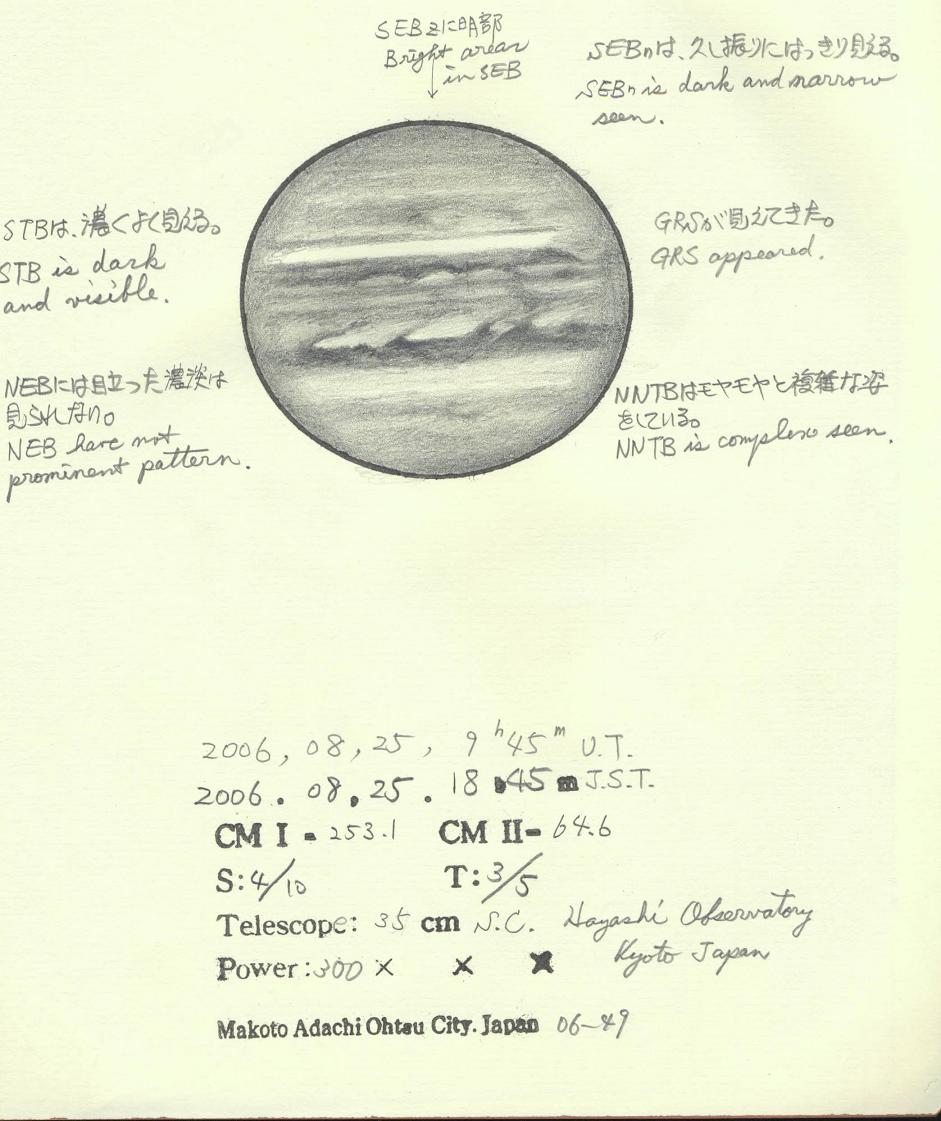 SEBZに明部
Bright area
in SEB
SEBnは、久し振りにはっきり見える。
SEBn is dark and narrow
seen.
STBは、濃くよく見える。
STB is dark
and visible.
GRSが見えてきた。
GRS appeared.
NEBには目立った濃淡は
見られない。
NEB have not
prominent pattern.
NNTBはモヤモヤと複雑な姿
をしている。
NNTB is complex seen.
2006, 08, 25, 9h 45m U.T.
2006. 08. 25. 18 45 m J.S.T.
CM I = 253.1 CM II= 64.6
S: 4/10 T: 3/5
Telescope: 35 cm S.C. Hayashi Observatory
Kyoto Japan
Power: 300 × × ×
Makoto Adachi Ohtsu City. Japan 06-49